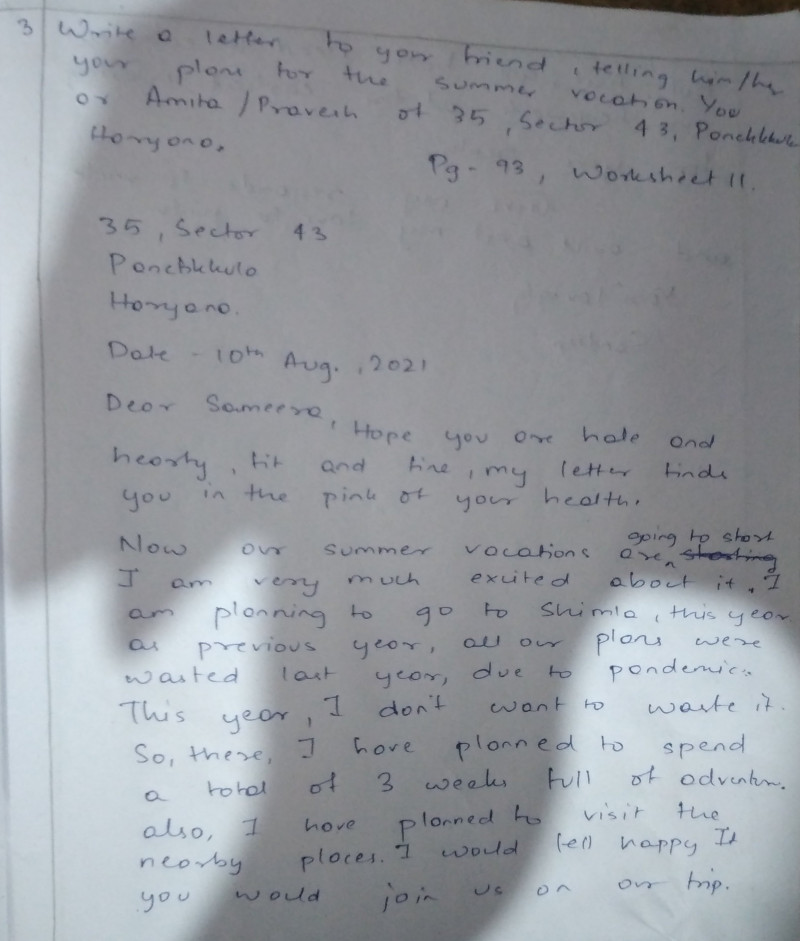 3 Write a letter to your friend, telling him/her
your plans for the summer vacation. You
or Amita / Pravesh of 35, Sector 43, Panchkkula
Haryana.
Pg - 93, Worksheet 11.
35, Sector 43
Panchkkula
Haryana.
Date - 10th Aug., 2021
Dear Sameera,
Hope you are hale and
hearty, fit and fine, my letter finds
you in the pink of your health.
going to start
Now our summer vacations are, starting
I am very much excited about it, I
am planning to go to Shimla, this year
as previous year, all our plans were
wasted last year, due to pandemic.
This year, I don't want to waste it.
So, there, I have planned to spend
a total of 3 weeks full of adventure.
also, I have planned to visit the
nearby places. I would fell happy If
you would join us on our trip.